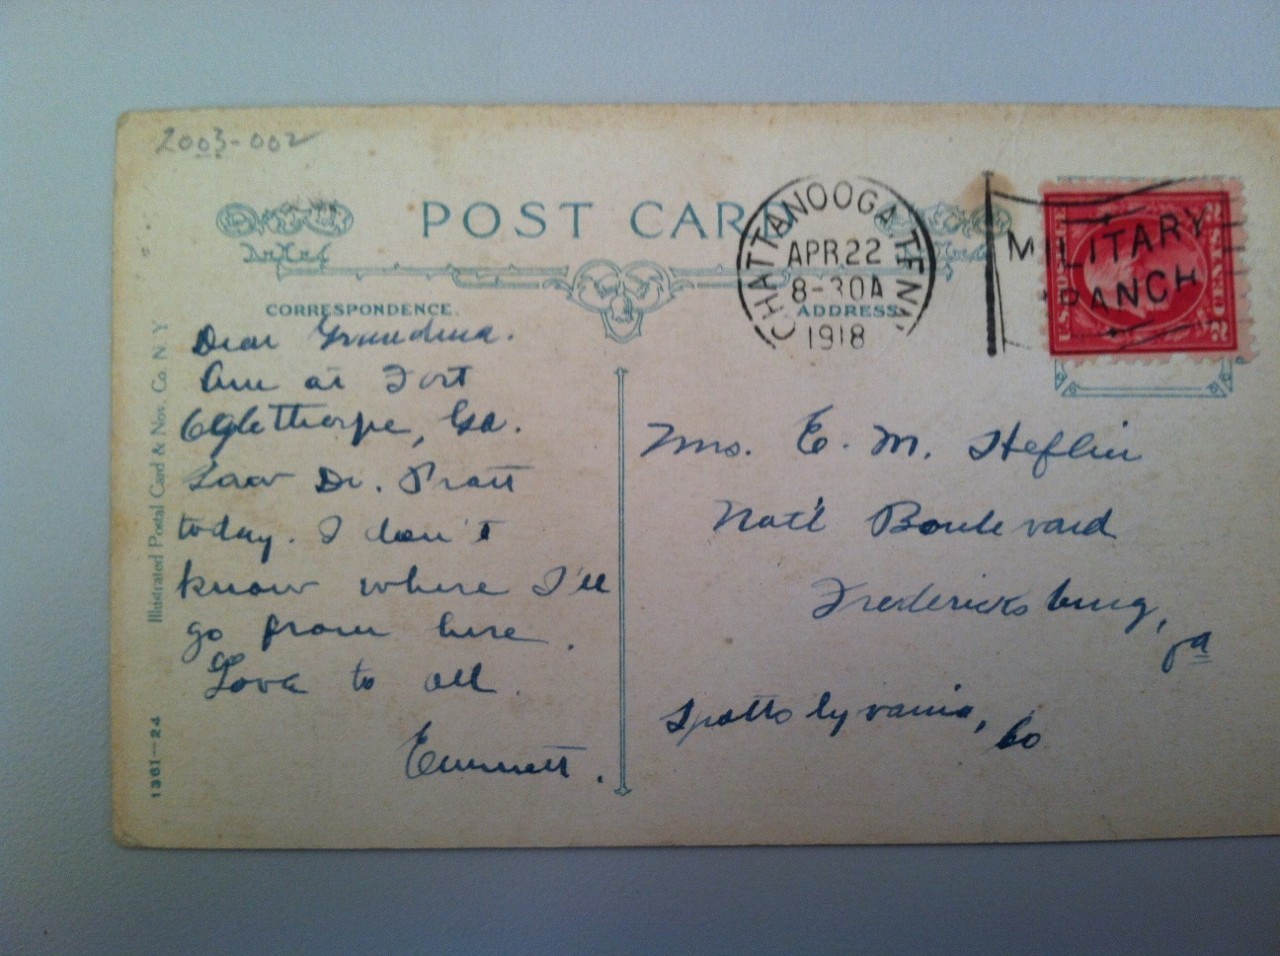 2003-002
POST CARD
CHATTANOOGA, TENN.
APR 22
8-30A
1918
MILITARY
RANCH
U.S. POSTAGE
2 CENTS 2
CORRESPONDENCE.
ADDRESS
Dear Grandma.
Am at Fort
Oglethorpe, Ga.
Saw Dr. Pratt
today. I don't
know where I'll
go from here.
Love to all.
Emmett.
Mrs. E. M. Heflin
Nat'l Boulevard
Fredericksburg,
Va
Spottsylvania, Co
Illustrated Postal Card & Nov. Co. N Y
1361-24